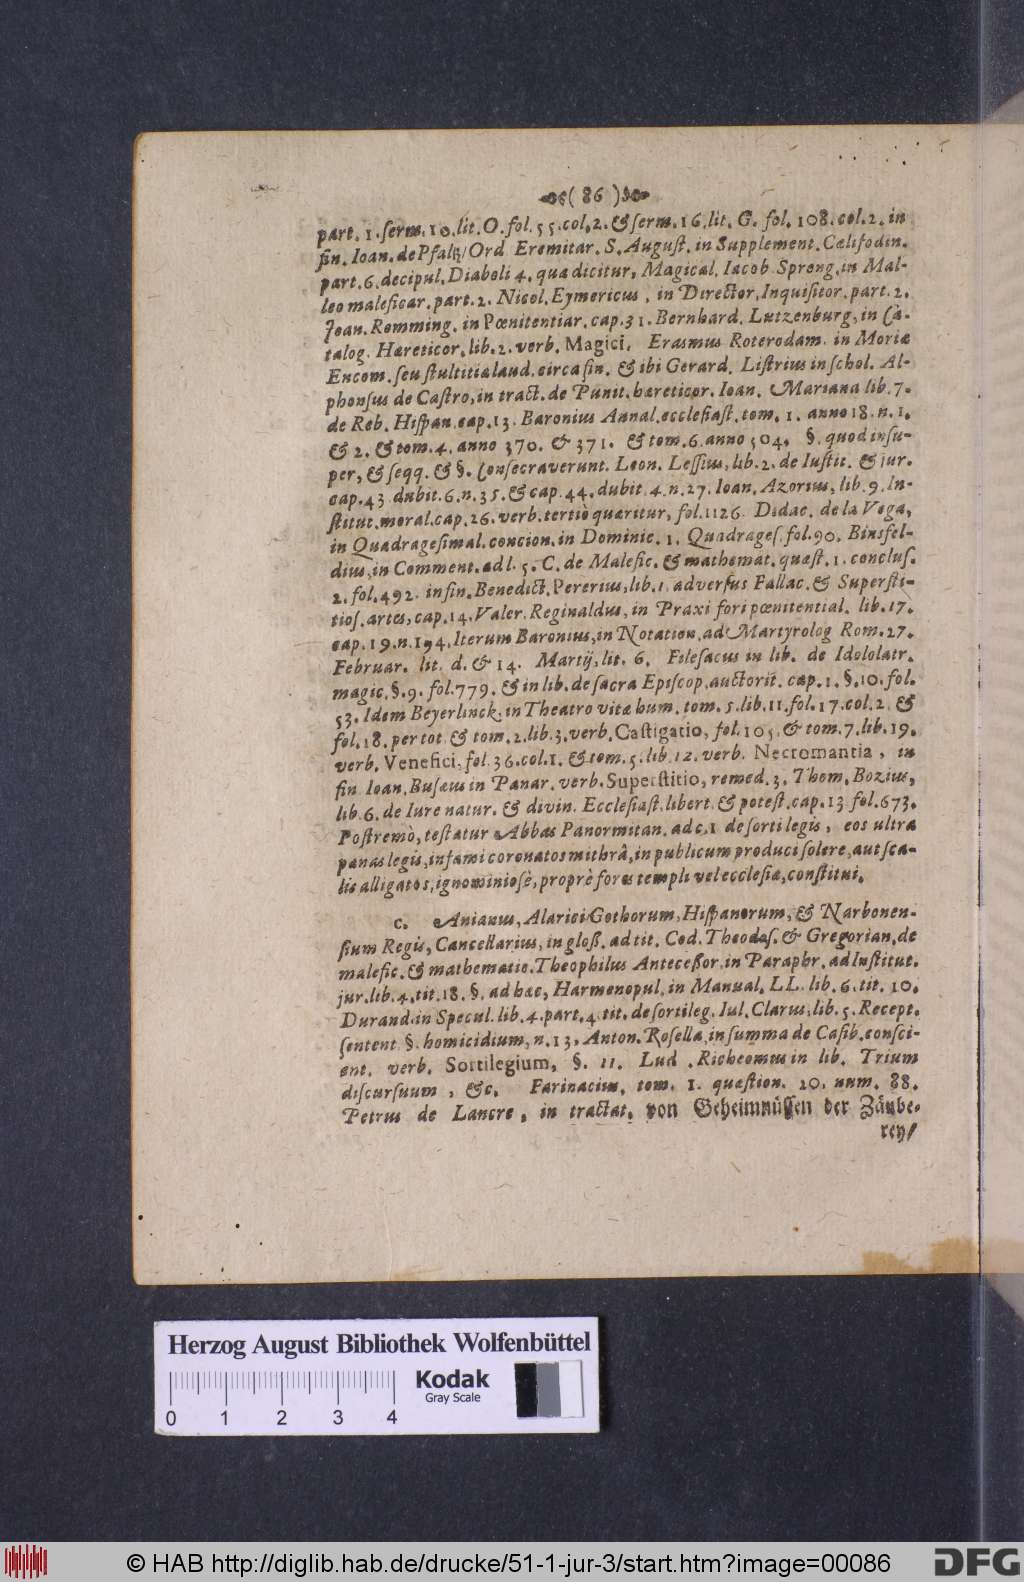 ( 86 )
part. 1. ſerm. 10. lit. O. fol. 55. col. 2. & ſerm. 16. lit. G. fol. 108. col. 2. in
fin. Ioan. de Pfaltz/Ord Eremitar. S. Auguſt. in Supplement. Cœlifodin.
part. 6. decipul. Diaboli 4. qua dicitur, Magical. Iacob Spreng. in Mal-
leo maleficar. part. 2. Nicol. Eymericus, in Director. Inquiſitor. part. 2.
Joan. Romming. in Pœnitentiar. cap. 31. Bernhard. Lutzenburg, in Ca-
talog. Hæreticor. lib. 2. verb. Magici. Erasmus Roterodam. in Moriæ
Encom. ſeu ſtultitiæ laud. circa fin. & ibi Gerard. Liſtrius in ſchol. Al-
phonſus de Caſtro, in tract. de Punit. hæreticor. Ioan. Mariana lib. 7.
de Reb. Hiſpan. cap. 13. Baronius Annal. eccleſiaſt. tom. 1. anno 18. n. 1.
& 2. & tom. 4. anno 370. & 371. & tom. 6. anno 504. §. quod inſu-
per, & ſeqq. & §. Conſecraverunt. Leon. Leſſius, lib. 2. de Iuſtit. & jur.
cap. 43. dubit. 6. n. 35. & cap. 44. dubit. 4. n. 27. Ioan. Azorius, lib. 9. In-
ſtitut. moral. cap. 26. verb. tertiò quæritur, fol. 1126. Didac. de la Vega,
in Quadrageſimal. concion. in Dominic. 1. Quadrageſ. fol. 90. Binsfel-
dius, in Comment. ad l. 5. C. de Malefic. & mathemat. quæſt. 1. concluſ.
2. fol. 492. in fin. Benedict. Pererius, lib. 1. adverſus Fallac. & Superſti-
tioſ. artes, cap. 14. Valer. Reginaldus, in Praxi fori pœnitential. lib. 17.
cap. 19. n. 194. Iterum Baronius, in Notation. ad Martyrolog Rom. 27.
Februar. lit. d. & 14. Martij, lit. 6. Fileſacus in lib. de Idololatr.
magic. §. 9. fol. 779. & in lib. de ſacra Epiſcop. auctorit. cap. 1. §. 10. fol.
53. Idem Beyerlinck. in Theatro vitæ hum. tom. 5. lib. 11. fol. 17. col. 2. &
fol. 18. per tot. & tom. 2. lib. 3. verb. Caſtigatio, fol. 105. & tom. 7. lib. 19.
verb. Venefici, fol. 36. col. 1. & tom. 5. lib. 12. verb. Necromantia, in
fin. Ioan. Buſæus in Panar. verb. Superſtitio, remed. 3. Thom. Bozius,
lib. 6. de Iure natur. & divin. Eccleſiaſt. libert. & poteſt. cap. 13. fol. 673.
Poſtremò, teſtatur Abbas Panormitan. ad c. 1 de ſortilegis, eos ultra
pœnas legis, infami coronatos mithrâ, in publicum produci ſolere, aut ſca-
lis alligatos, ignominioſè, propè fores templi vel eccleſiæ, conſtitui.
c. Anianus, Alarici Gothorum, Hiſpanorum, & Narbonen-
ſium Regis, Cancellarius, in gloß. ad tit. Cod. Theodoſ. & Gregorian. de
malefic. & mathematic. Theophilus Anteceßor. in Paraphr. ad Inſtitut.
jur. lib. 4. tit. 18. §. ad hæc, Harmenopul. in Manual. LL. lib. 6. tit. 10.
Durand. in Specul. lib. 4. part. 4. tit. de ſortileg. Iul. Clarus, lib. 5. Recept.
ſentent. §. homicidium, n. 13. Anton. Roſella, in ſumma de Caſib. conſci-
ent. verb. Sortilegium, §. 11. Lud. Richeomus in lib. Trium
diſcurſuum, &c. Farinacius, tom. 1. quæſtion. 20. num. 88.
Petrus de Lancre, in tractat. von Geheimnüſſen der Zäube-
rey/
Herzog August Bibliothek Wolfenbüttel
Kodak
Gray Scale
0 1 2 3 4
© HAB http://diglib.hab.de/drucke/51-1-jur-3/start.htm?image=00086
DFG